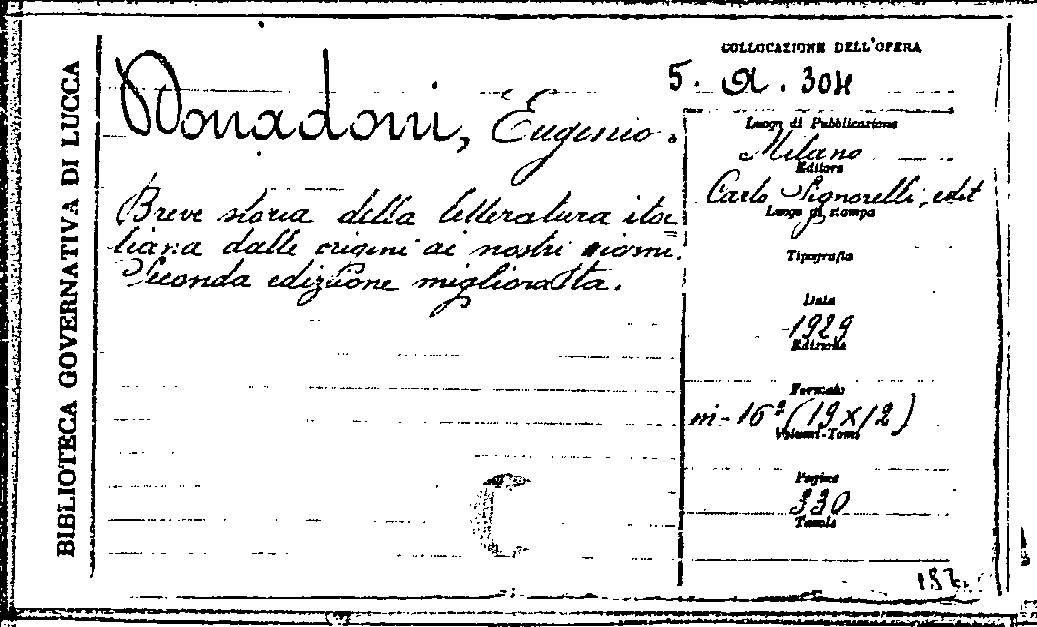 BIBLIOTECA GOVERNATIVA DI LUCCA
Donadoni, Eugenio.
Breve storia della letteratura ita=
liana dalle origini ai nostri giorni.
Seconda edizione miglioratta.
COLLOCAZIONE DELL'OPERA
5. A. 304
Luogo di Pubblicazione
Milano
Editore
Carlo Signorelli, edit
Luogo di stampa
Tipografia
Data
1929
Edizione
Formato
in-16º (19x12)
Volumi-Tomi
Pagine
330
Tavole
C